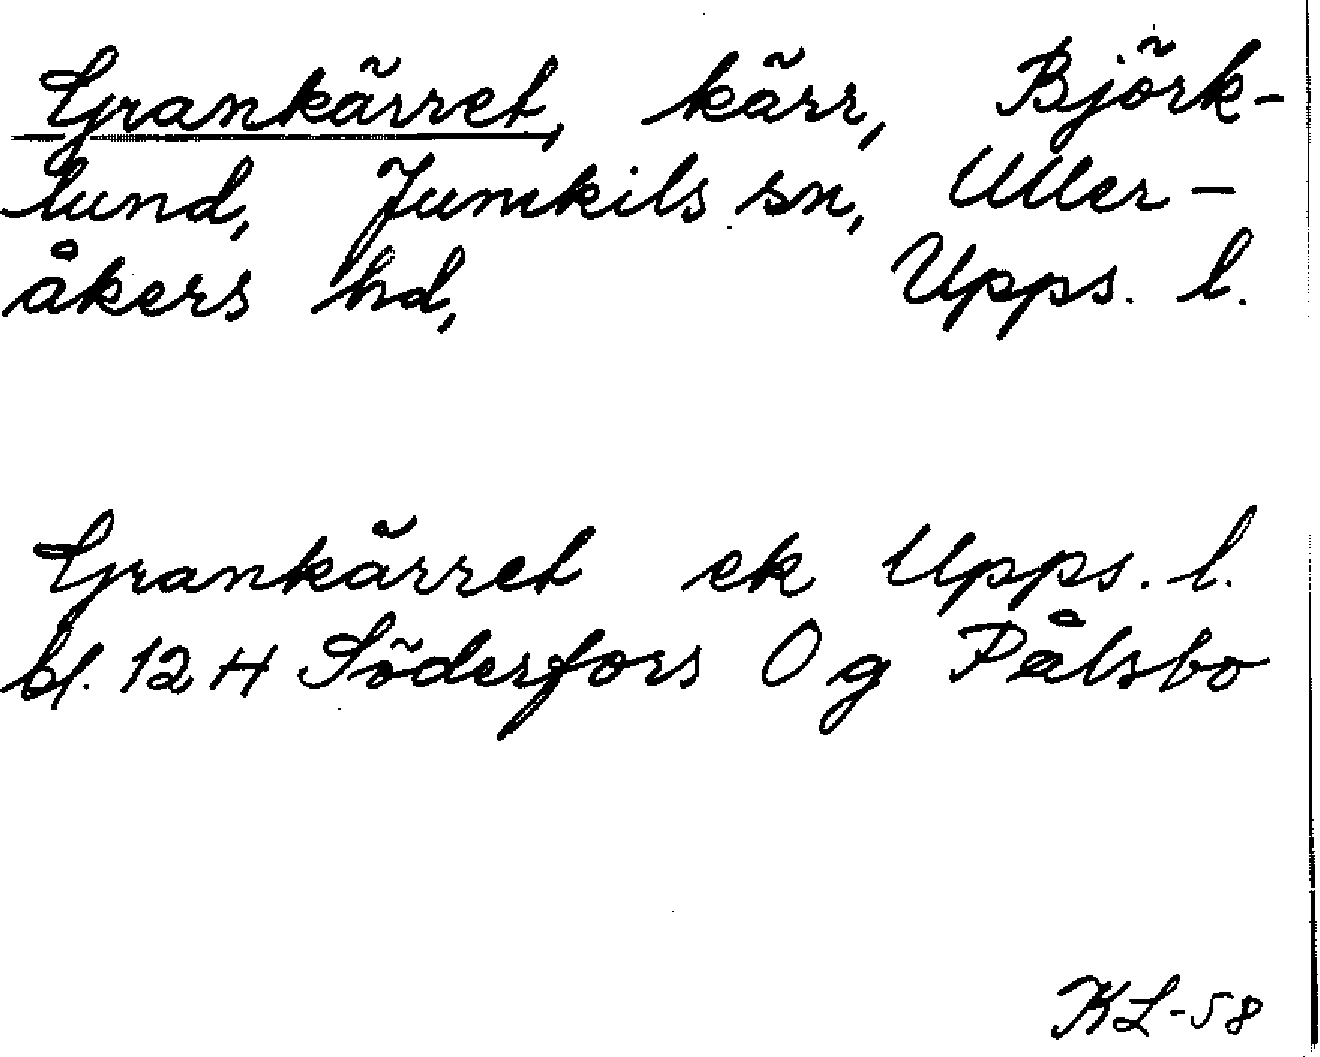 Grankärret, kärr, Björk-
lund, Jumkils sn, Uller-
åkers hd, Upps. l.
Grankärret ek Upps. l.
bl. 12 H Söderfors O g Pålsbo
KL-58